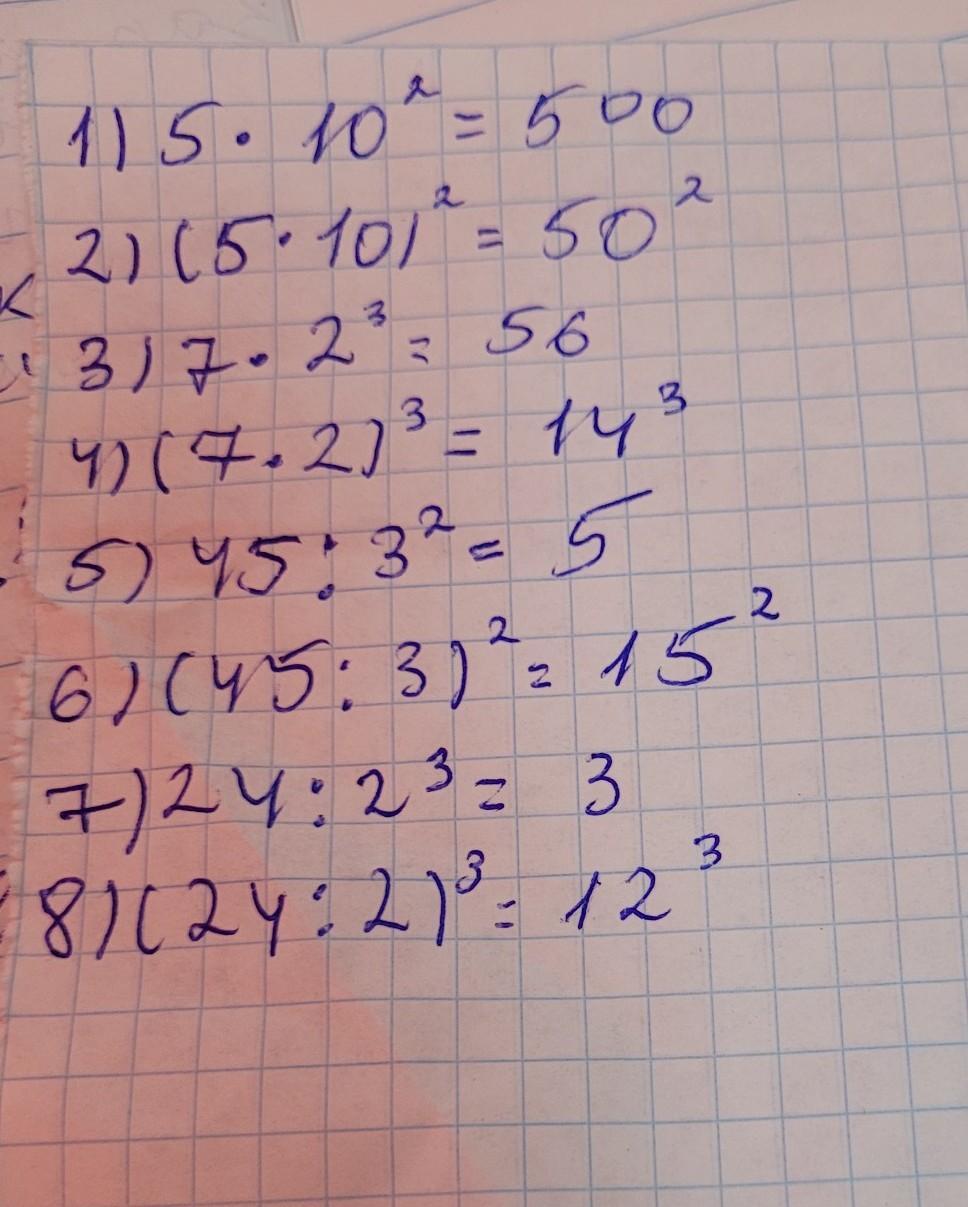 1) 5 · 10² = 500
2) (5 · 10)² = 50²
3) 7 · 2³ = 56
4) (7 · 2)³ = 14³
5) 45 : 3² = 5
6) (45 : 3)² = 15²
7) 24 : 2³ = 3
8) (24 : 2)³ = 12³